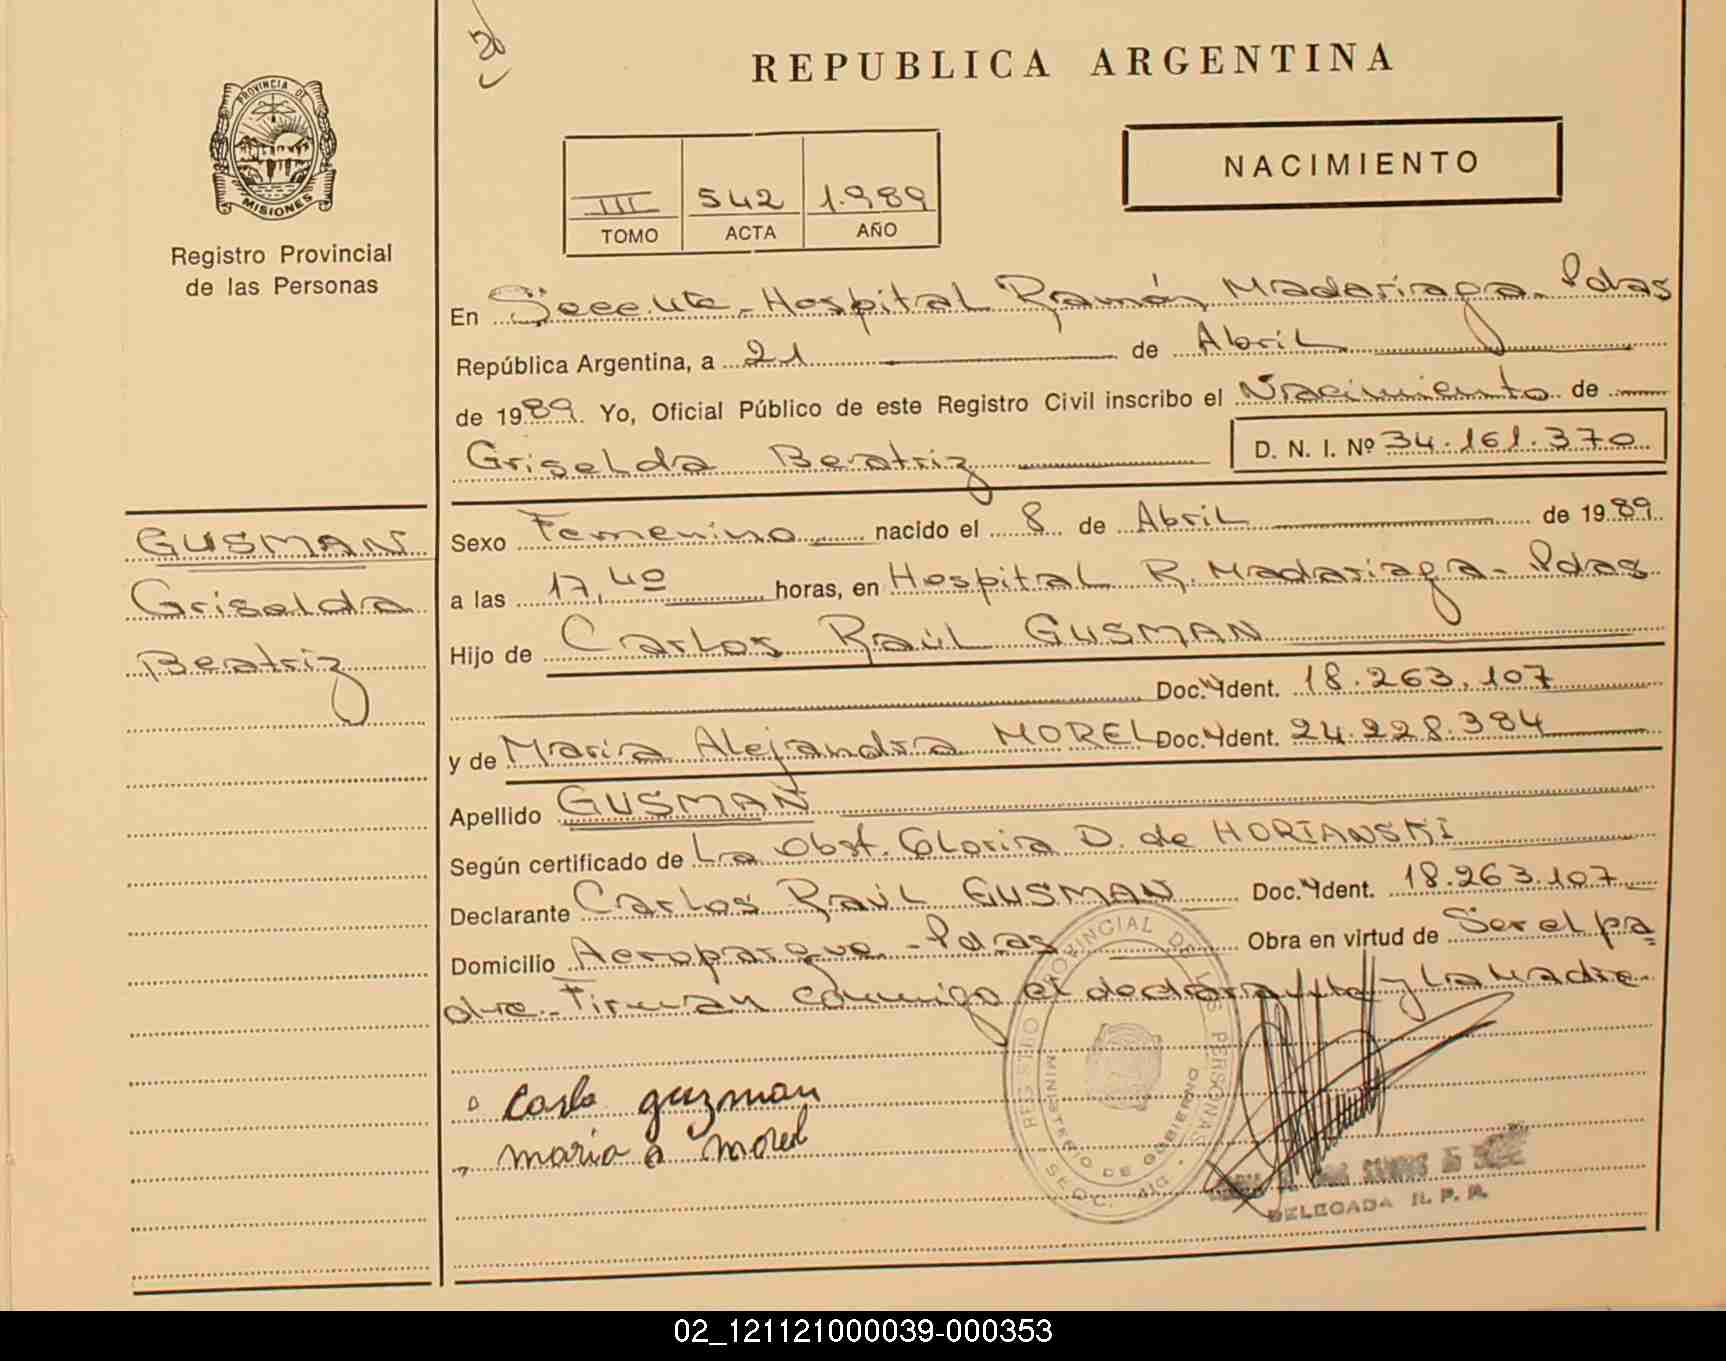 REPUBLICA ARGENTINA
PROVINCIA DE
MISIONES
Registro Provincial
de las Personas
NACIMIENTO
III 542 1.989
TOMO ACTA AÑO
En Seccute - Hospital Ramón Madariaga - Pdas
República Argentina, a 21 de Abril
de 1989 Yo, Oficial Público de este Registro Civil inscribo el Nacimiento de
Griselda Beatriz D. N. I. Nº 34.161.370
GUSMAN
Griselda
Beatriz
Sexo Femenino nacido el 8 de Abril de 1989
a las 17,40 horas, en Hospital R. Madariaga - Pdas
Hijo de Carlos Raúl GUSMAN
Doc. Ident. 18.263.107
y de María Alejandra MOREL Doc. Ident. 24.228.384
Apellido GUSMAN
Según certificado de La Obst. Gloria D. de HORIANSKI
Declarante Carlos Raúl GUSMAN Doc. Ident. 18.263.107
Domicilio Aeroparque - Pdas Obra en virtud de Ser el pa
dre - Firman conmigo el declarante y la Madre
REGISTRO PROVINCIAL DE LAS PERSONAS
MINISTERIO DE GOBIERNO
guzman
maria a morel
DELEGADA R. P. P.
02_121121000039-000353